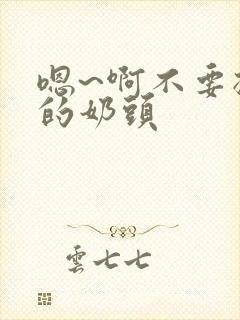 嗯~啊不要
的奶頭
雲七七